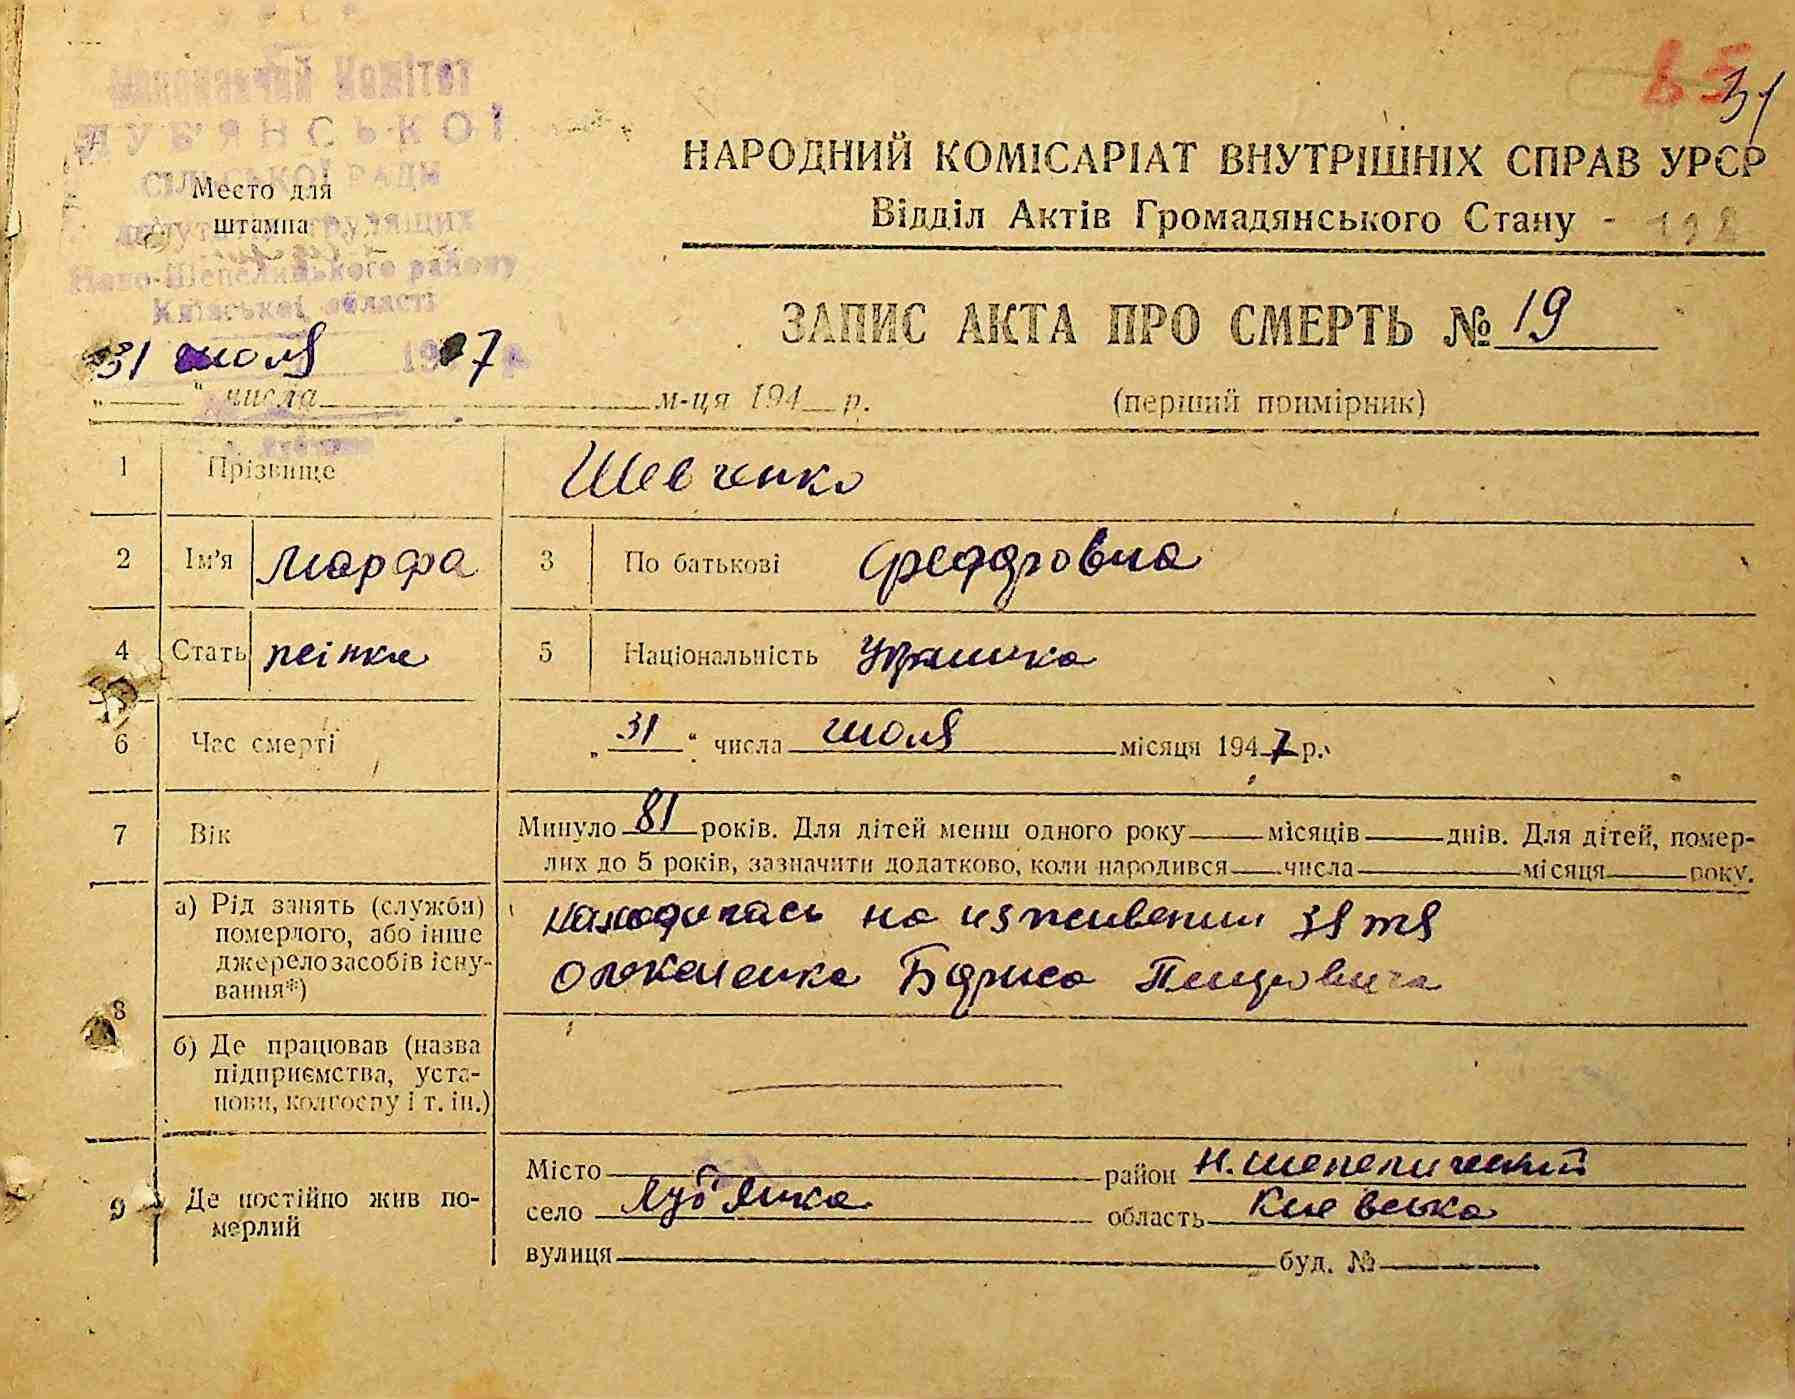 Виконавчий Комітет
ЛУБ'ЯНСЬКОЇ
СІЛЬСЬКОЇ РАДИ
депутатів трудящих
Ново-Шепелицького району
Київської області
Место для
штампа
31
НАРОДНИЙ КОМІСАРІАТ ВНУТРІШНІХ СПРАВ УРСР
Відділ Актів Громадянського Стану
ЗАПИС АКТА ПРО СМЕРТЬ № 19
31 июля 1947 р.
„ “ числа м-ця 194 р. (перший примірник)
1 Прізвище Шевченко
2 Ім'я Марфа 3 По батькові Феддровна
4 Стать жінка 5 Національність Украинка
6 Час смерті „31“ числа июля місяця 1947 р.
7 Вік Минуло 81 років. Для дітей менш одного року місяців днів. Для дітей, помер-
лих до 5 років, зазначити додатково, коли народився числа місяця року.
8 а) Рід занять (служби) находилась на иждивении зятя
померлого, або інше
джерело засобів існу- Бориса
вання*)
б) Де працював (назва
підприємства, уста-
нови, колгоспу і т. ін.)
9 Де постійно жив по-
мерлий
Місто район Н. Шепелический
село Луб'янка область Киевська
вулиця буд. №